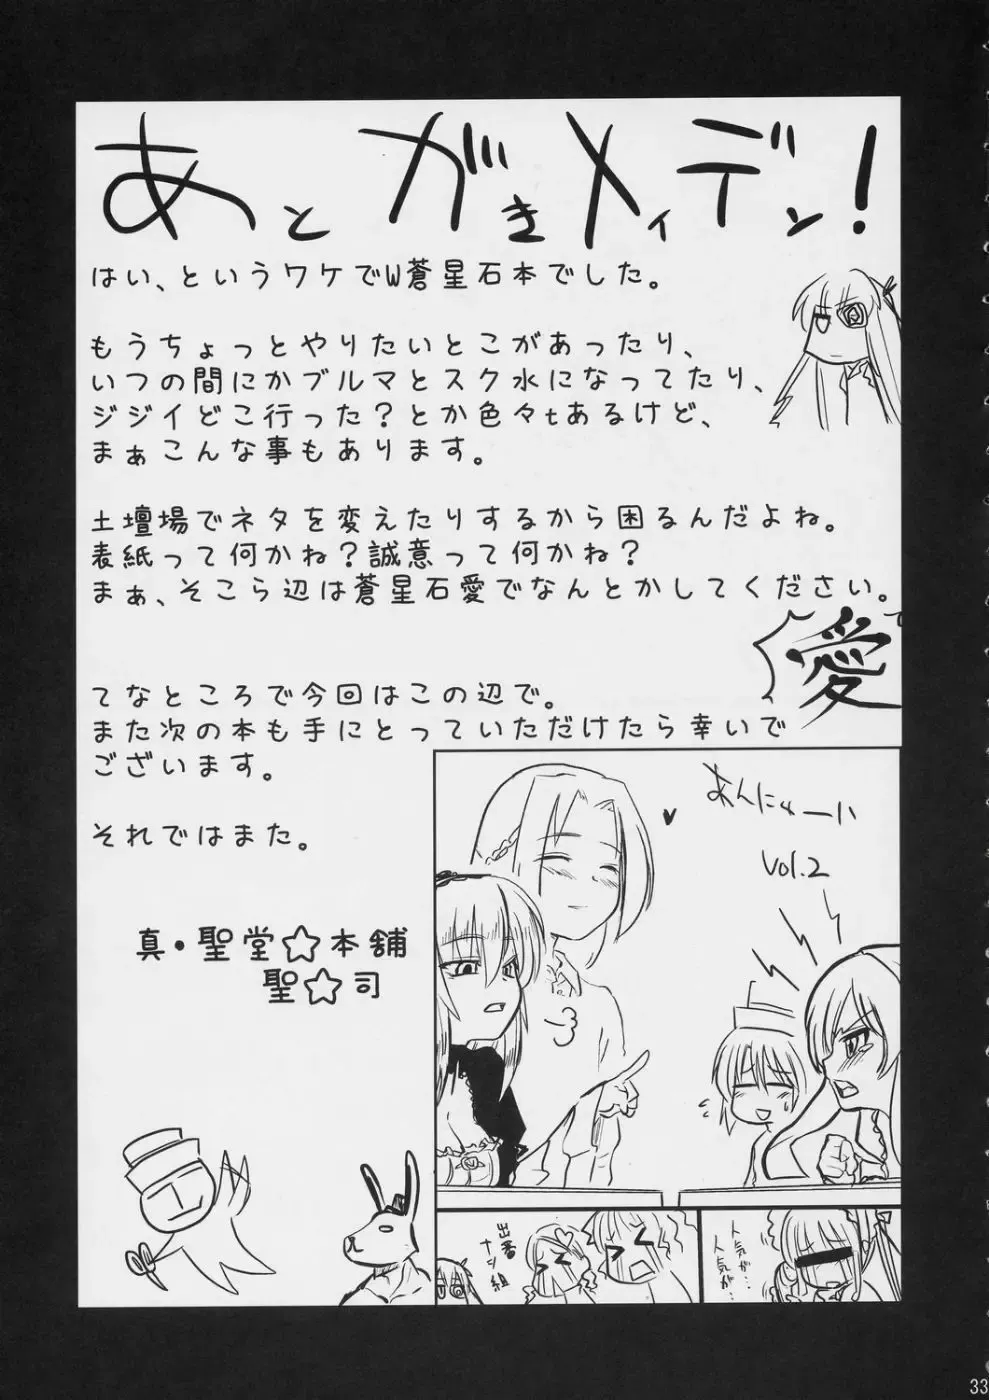 あとがきメイデン！
はい、というワケでW蒼星石本でした。
もうちょっとやりたいとこがあったり、
いつの間にかブルマとスク水になってたり、
ジジイどこ行った？とか色々tあるけど、
まぁこんな事もあります。
土壇場でネタを変えたりするから困るんだよね。
表紙って何かね？誠意って何かね？
まぁ、そこら辺は蒼星石愛でなんとかしてください。
愛
てなところで今回はこの辺で。
また次の本も手にとっていただけたら幸いで
ございます。
それではまた。
真・聖堂☆本舗
聖☆司
あんにゅーい
vol.2
出番
ナシ
組
人気が…
人気が…
33